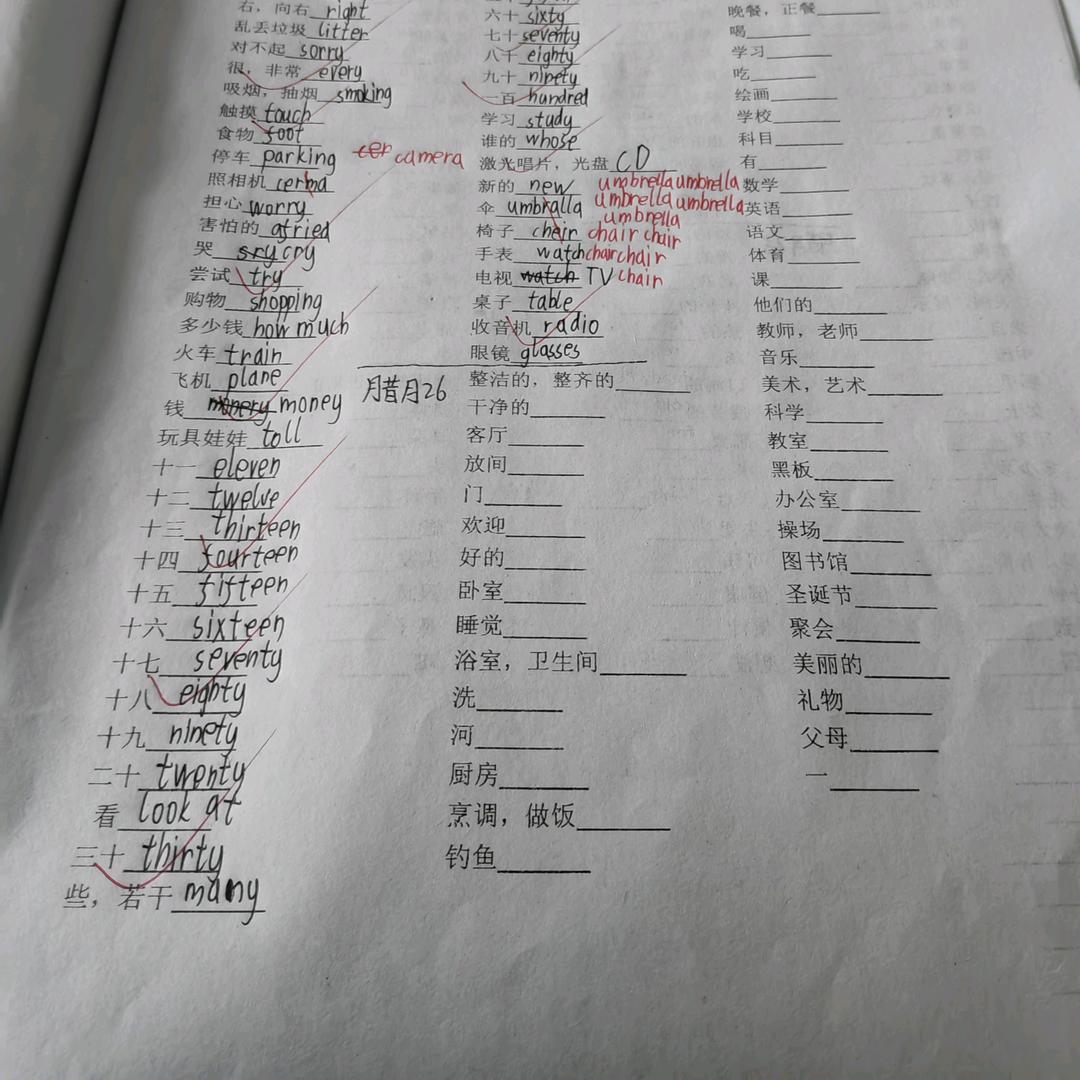 右，向右 right
乱丢垃圾 litter
对不起 sorry
很，非常 every
吸烟，抽烟 smoking
触摸 touch
食物 foot
停车 parking camera
照相机 cerma
担心 worry
害怕的 afried
哭 sry cry
尝试 try
购物 shopping
多少钱 how much
火车 train
飞机 plane
钱 monery money
玩具娃娃 toll
十一 eleven
十二 twelve
十三 thirteen
十四 fourteen
十五 fifteen
十六 sixteen
十七 seventy
十八 eighty
十九 ninety
二十 twenty
看 look at
三十 thirty
些，若干 many
六十 sixty
七十 seventy
八千 eighty
九十 ninety
一百 hundred
学习 study
谁的 whose
激光唱片，光盘 CD
新的 new umbrella umbrella
伞 umbralla umbrella umbrella
umbrella
椅子 cheir chair chair
手表 watch chair chair
电视 watch TV chair
桌子 table
收音机 radio
眼镜 glasses
腊月26
整洁的，整齐的
干净的
客厅
放间
门
欢迎
好的
卧室
睡觉
浴室，卫生间
洗
河
厨房
烹调，做饭
钓鱼
晚餐，正餐
喝
学习
吃
绘画
学校
科目
有
数学
英语
语文
体育
课
他们的
教师，老师
音乐
美术，艺术
科学
教室
黑板
办公室
操场
图书馆
圣诞节
聚会
美丽的
礼物
父母
一